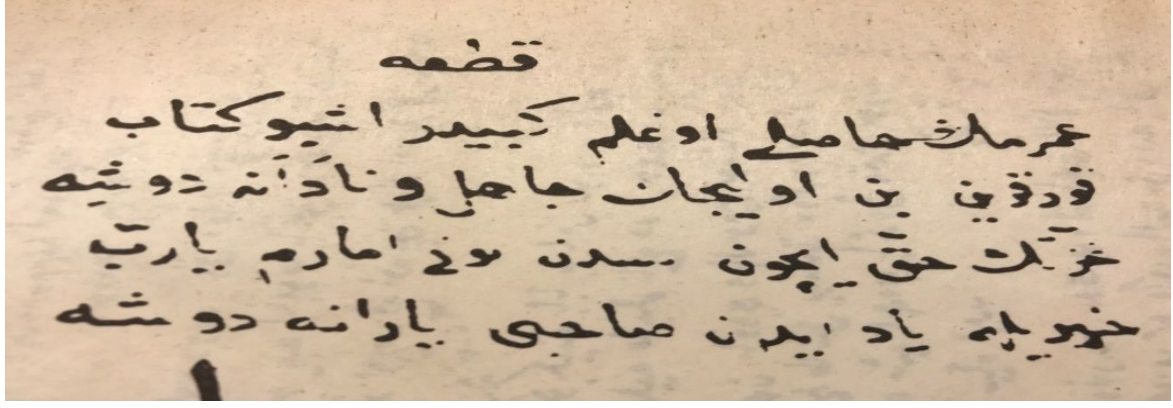 قطعه
عمرمك حاصلی اوغلم كبیدر اشبو كتاب
بن اولیجان جاهل و نادانه دوشه
عزّتك حقّی ایچون سندن بونی امارم یاربّ
خیریله یاد ایدن صاحبی یارانه دوشه